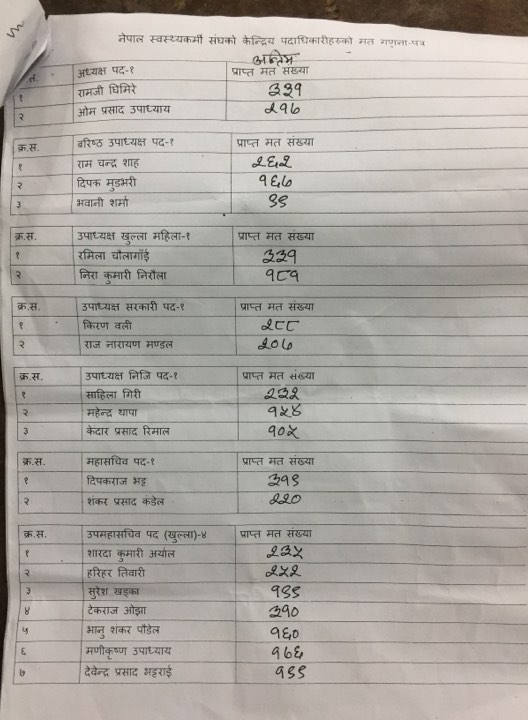 नेपाल स्वस्थ्यकर्मी संघको केन्द्रिय पदाधिकारीहरुको मत गणना-पत्र
अन्तिम
अध्यक्ष पद-१ प्राप्त मत संख्या
१ रामजी घिमिरे ३३९
२ ओम प्रसाद उपाध्याय २१६
क्र.स. बरिष्ठ उपाध्यक्ष पद-१ प्राप्त मत संख्या
१ राम चन्द्र शाह २६२
२ दिपक मुडभरी १६७
३ भवानी शर्मा ९९
क्र.स. उपाध्यक्ष खुल्ला महिला-१ प्राप्त मत संख्या
१ रमिला चौलागाँई ३३९
२ निरा कुमारी निरौला १८१
क्र.स. उपाध्यक्ष सरकारी पद-१ प्राप्त मत संख्या
१ किरण वली २८८
२ राज नारायण मण्डल २०७
क्र.स. उपाध्यक्ष निजि पद-१ प्राप्त मत संख्या
१ साहिला गिरी २३२
२ महेन्द्र थापा १५४
३ केदार प्रसाद रिमाल १०५
क्र.स. महासचिव पद-१ प्राप्त मत संख्या
१ दिपकराज भट्ट ३१९
२ शंकर प्रसाद कंडेल २२०
क्र.स. उपमहासचिव पद (खुल्ला)-४ प्राप्त मत संख्या
१ शारदा कुमारी अर्याल २३५
२ हरिहर तिवारी २५२
३ सुरेश खड्का १९९
४ टेकराज ओझा ३१०
५ भानु शंकर पौडेल १६०
६ मणीकृष्ण उपाध्याय १७६
७ देवेन्द्र प्रसाद भट्टराई १९९